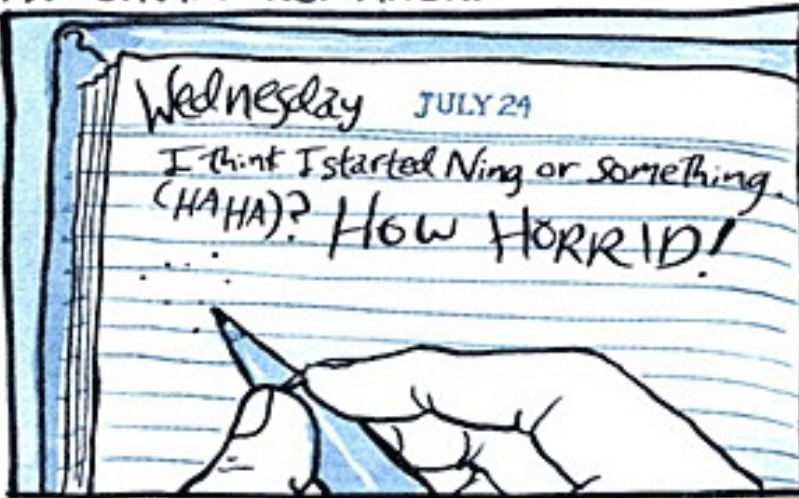 Wednesday JULY 24
I think I started Ning or something.
(HA HA)? HOW HORRID!